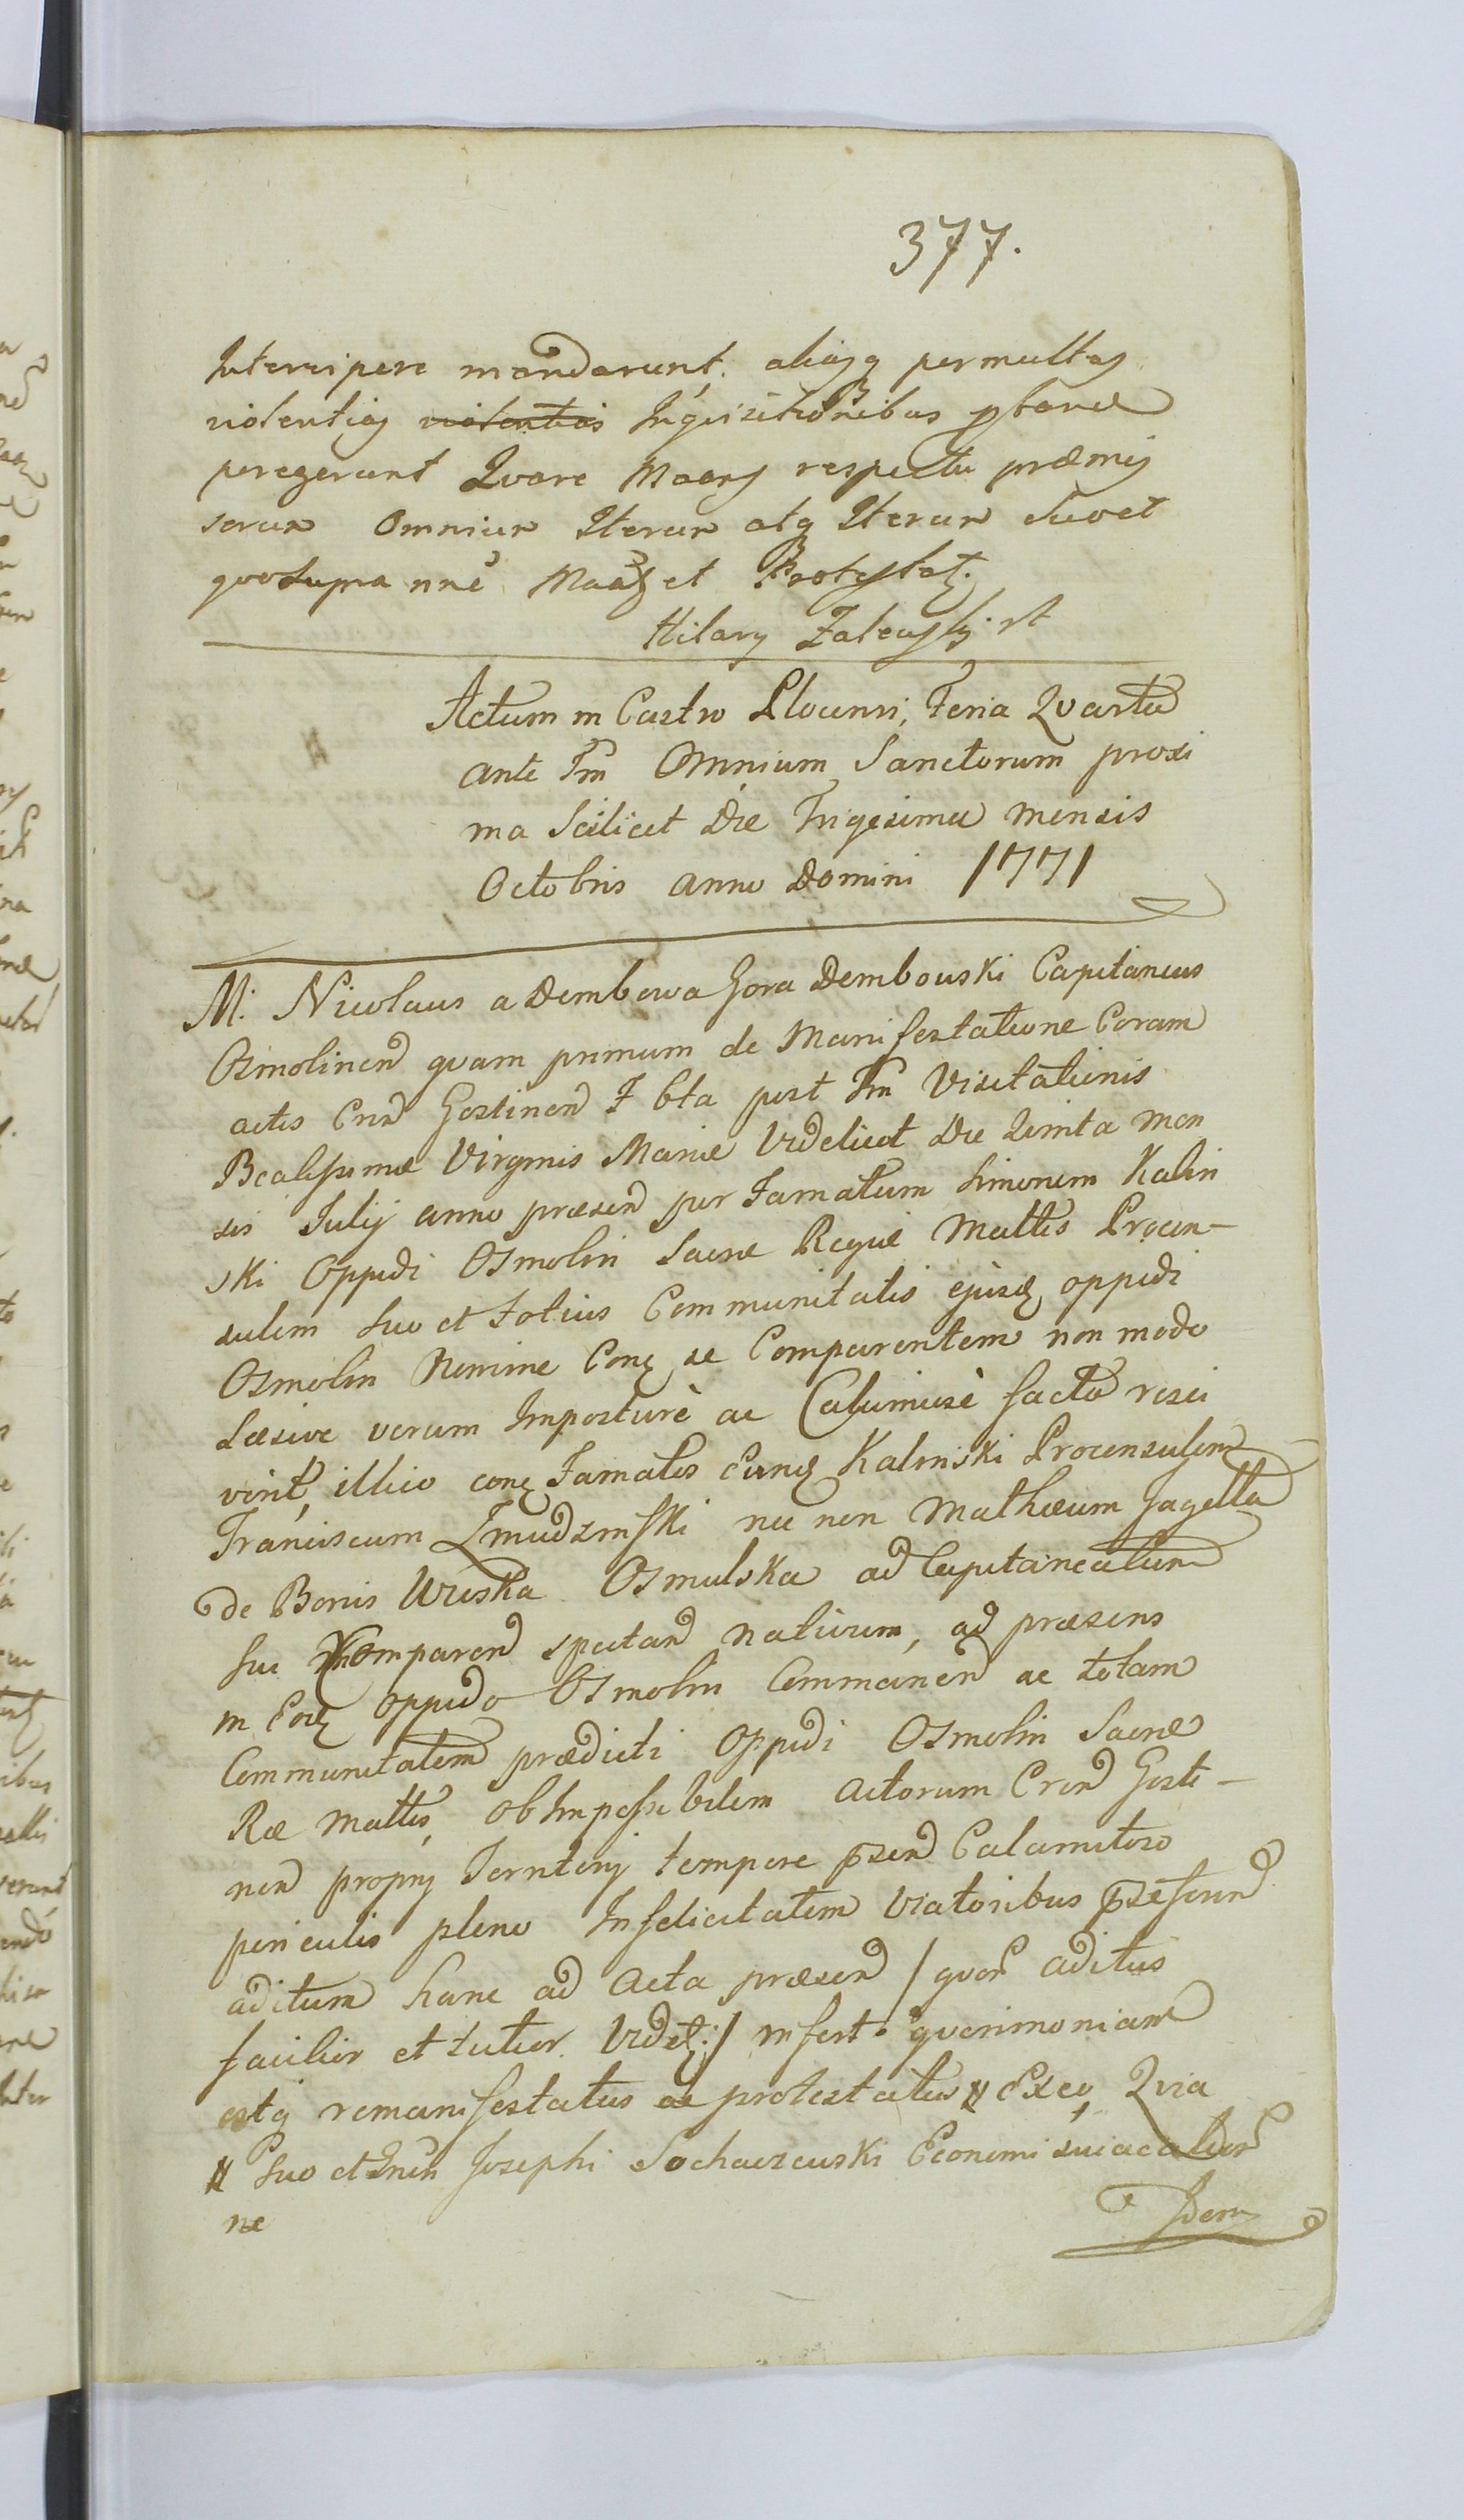 377.
Intercipere mandarunt, aliasq permultas
violentias violentias Inqvisitionibus pbandas
peregerunt Qvare Maans respectu præmis
sorum Omnium Iterum atq Iterum suo et
qvo supra nne Maatz et Protestatz.
Hilary Zalewski
Actum in Castro Plocensi, Feria Qvarta
ante Fm Omnium Sanctorum proxi
ma Scilicet Die Trigesima mensis
Octobris anno Domini 1771
M. Nicolaus a Dembowa Gora Dembowski Capitaneus
Osmolinen qvam primum de Manifestatione Coram
actis Cnn Gostinen F 6ta post Fm Visitationis
Beatissimæ Virginis Mariæ Videlicet Die Qvinta Men
sis Julij anno præsen per Famatum Simonem Kalin
ski Oppidi Osmolin Sacræ Regiæ Mattis Procon-
sulem suo et totius Communitatis ejusq oppidi
Osmolin Nomine Conz se Comparentem non modo
Læsive verum Imposture ac Calumiose facta resci
vint, illico conz Famatos eunq Kalinski Proconsulem
Franciscum Zmudzinski nec non Mathæum Jagetta
de Bonis Wiska Osmulska ad Capitaneatum
sui Comparen spectan nativum, ad præsens
in Eoq oppido Osmolin Commanen ac totam
Communitatem prædicti Oppidi Osmolin Sacræ
Ræ Mattis, ob Impossibilem Actorum Cren Gosti-
nen proprij Territorij tempore psen Calamitoso
periculis pleno Infelicitatem Viatoribus pseferen
aditum hanc ad Acta præsen / qvor aditus
facilior et tutior Videt: / infert qverimoniam
estq remanifestatus ac protestatus # Ex eo, Qvia
# suo et Gnen Josephi Sochaczewski Economi sui
ne
Idem